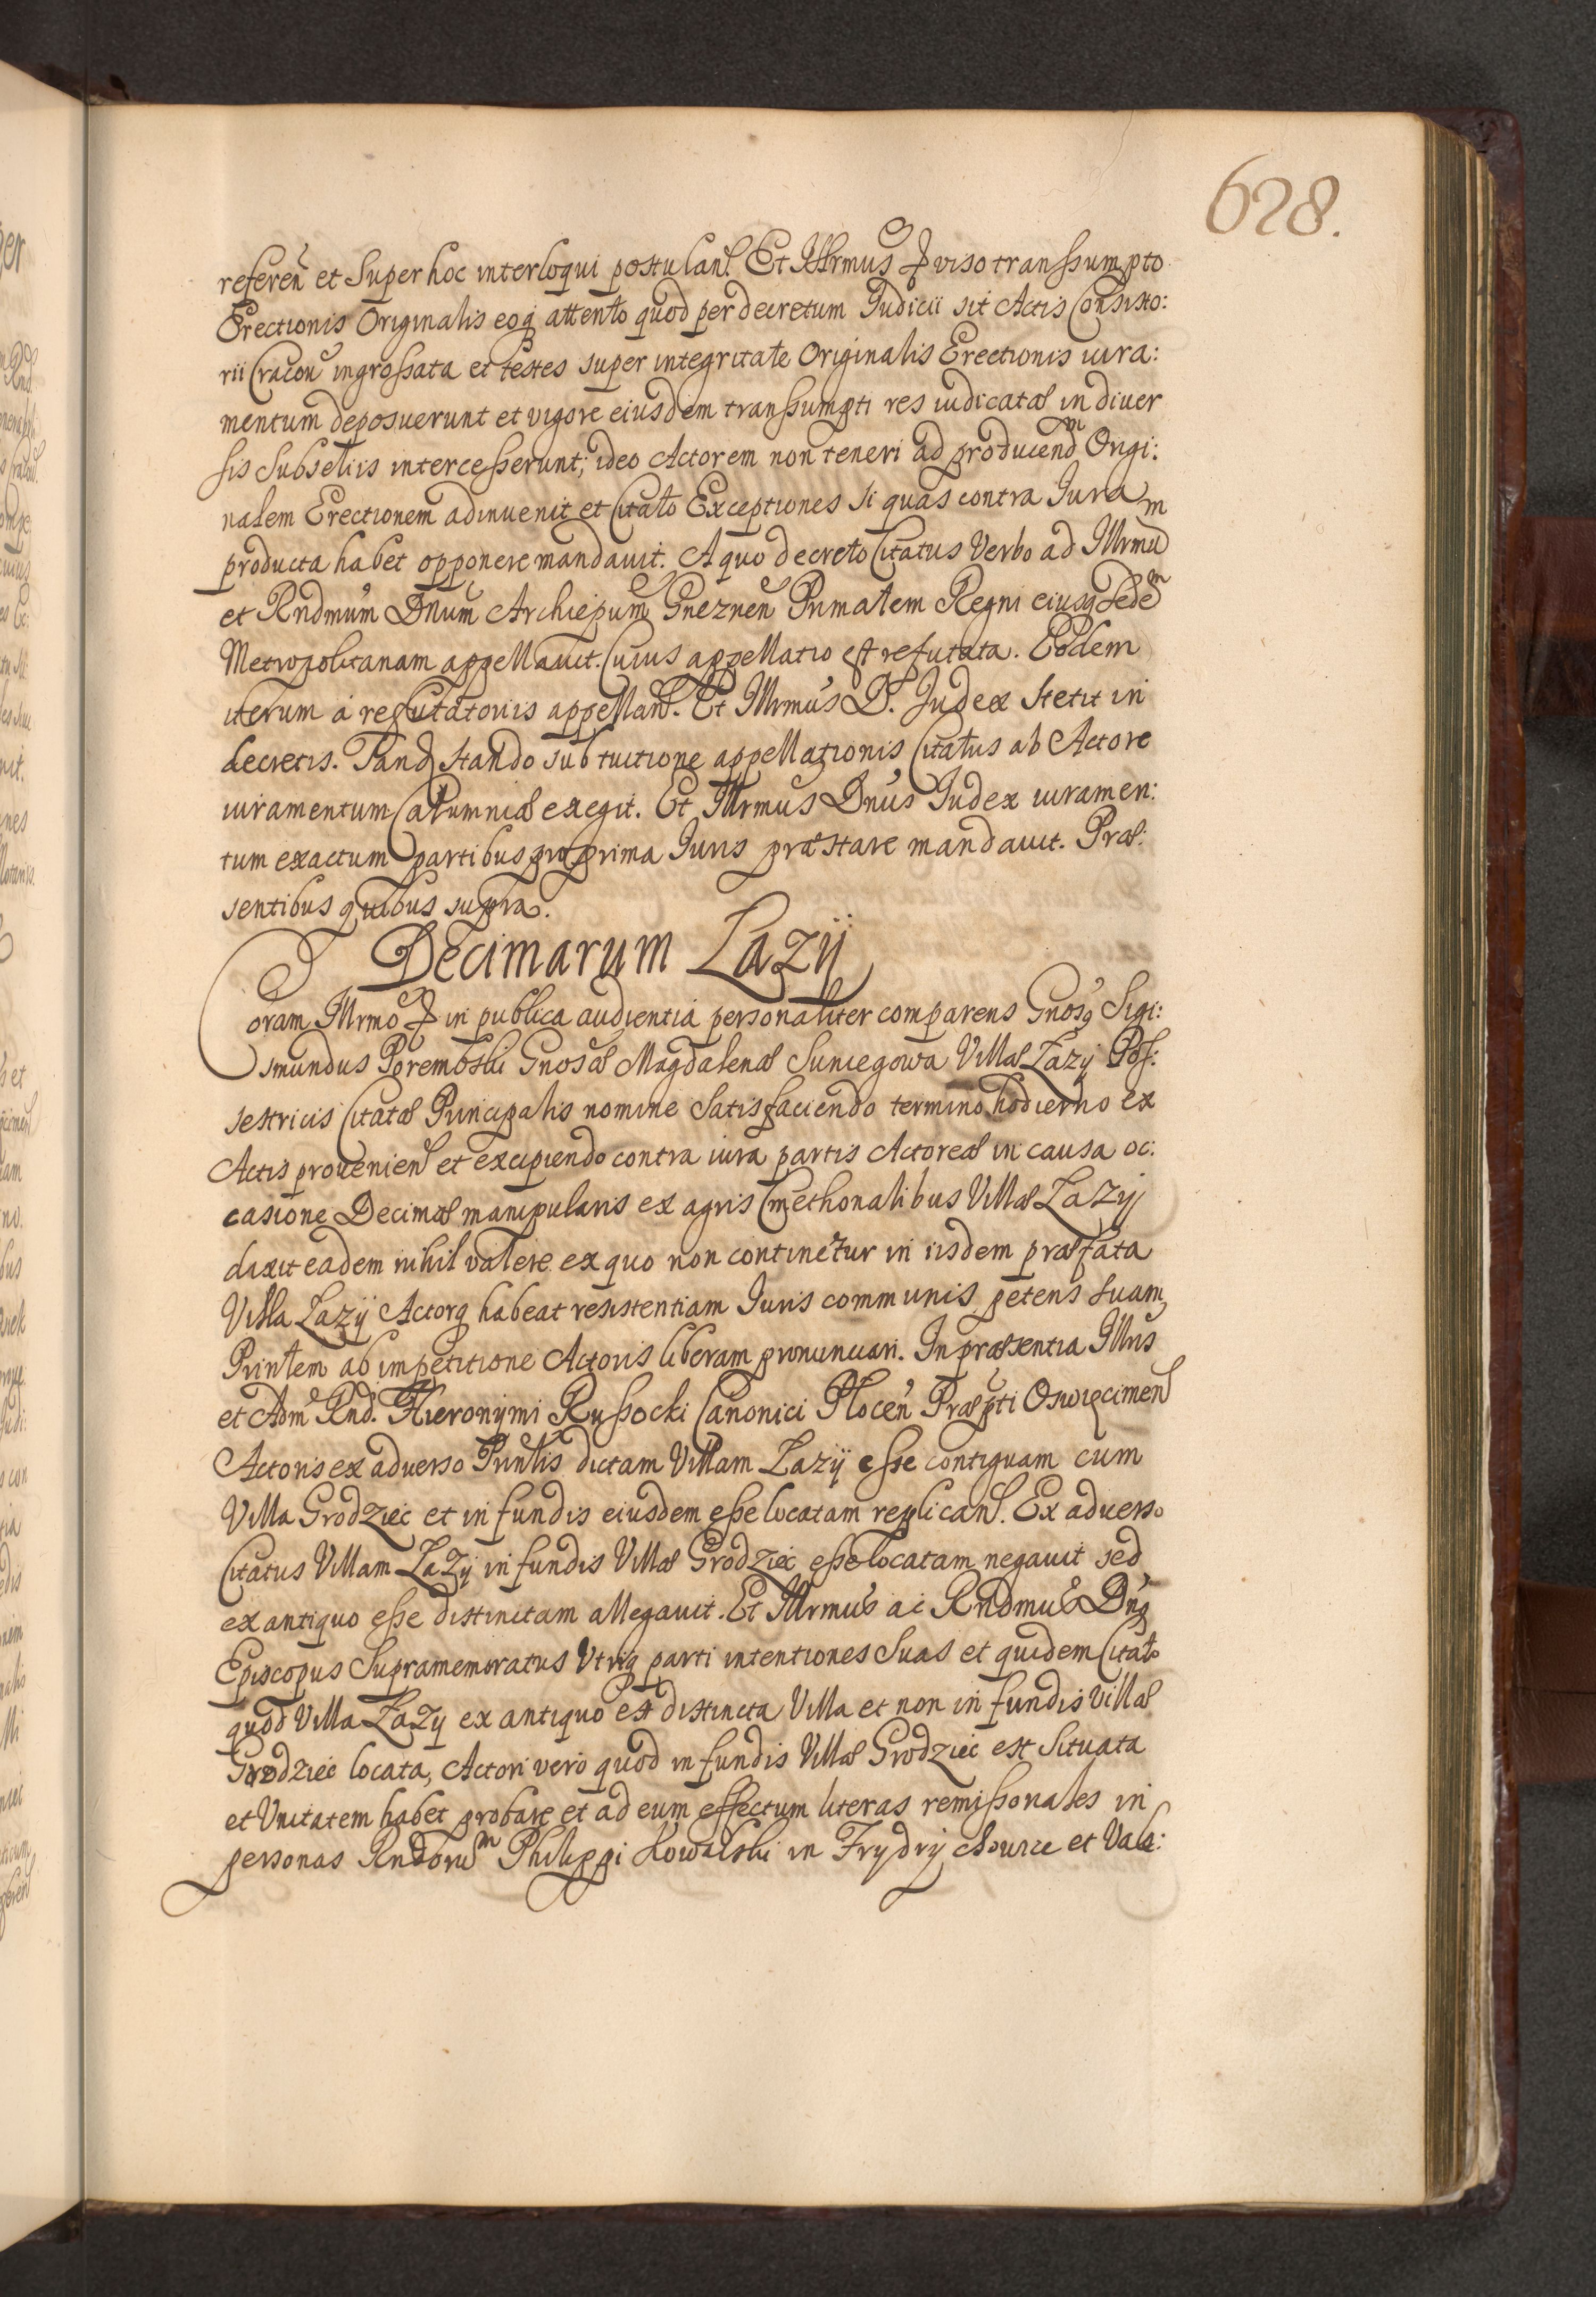 628.
referen̄ et Super hoc interloqui postulan̄. Et Illrmus &c viso transsumpto
Erectionis Originalis eoq attento quod per decretum Judicii sit Actis Consisto:
rii Cracoū ingrossata et testes super integritate Originalis Erectionis iura:
mentum deposuerunt et vigore eiusdem transsumpti res iudicatæ in diuer
sis Subseliis intercesserunt; ideo Actorem non teneri ad producendm Origi:
nalem Erectionem adinuenit et Citato Exceptiones si quas contra Jura
producta habet opponere mandauit. A quo decreto Citatus Verbo ad Illrmum
et Rndmum Dnum Archiepum Gneznen̄ Primatem Regni eiusq Sedem
Metropolitanam appellauit. Cuius appellatio est refutata. Eodem
iterum a refutatoriis appellan̄. Et Illrmus D. Judex Stetit in
decretis. Tand stando sub tuitione appellationis Citatus ab Actore
iuramentum Calumniæ exegit. Et Illrmus Dnus Judex iuramen:
tum exactum partibus pro prima Juris præstare mandauit. Præ:
sentibus quibus supra.
Decimarum Lazÿ
Coram Illrmo &c in publica audientia personaliter comparens Gnosq Sigi:
smundus Porembski Gnosæ Magdalenæ Suniegowa Villæ Lazy Pos:
sestricis Citatæ Principalis nomine Satisfaciendo termino hodierno ex
Actis prouenien̄ et excipiendo contra iura partis Actoreæ in causa oc:
casione Decimæ manipularis ex agris Cmethonalibus Villæ Lazÿ
dixit eadem nihil valere ex quo non continetur in iisdem præfata
Villa Lazÿ Actorq habeat resistentiam Juris communis petens suam
Prinlem ab impetitione Actoris liberam pronunciari. In præsentia Illris
et Adm Rnd. Hieronymi Russocki Canonici Plocen̄ Præpti Oswięcimen̄
Actoris ex aduerso Prinlis dictam Villam Lazÿ esse contiguam cum
Villa Grodziec et in fundis eiusdem esse locatam replican̄. Ex aduerso
Citatus Villam Lazÿ in fundis Villæ Grodziec esse locatam negauit sed
ex antiquo esse distinctam allegauit. Et Illrmus ac Rndmus Dnq
Episcopus Supramemoratus Vtriq parti intentiones Suas et quidem Citato
quod Villa Lazÿ ex antiquo est distincta Villa et non in fundis Villæ
Grodziec locata, Actori vero quod in fundis Villæ Grodziec est Situata
et Vnitatem habet probare et ad eum effectum literas remissonales in
personas Rndorum Philippi Kowalski in Frydrychowice et Vale: